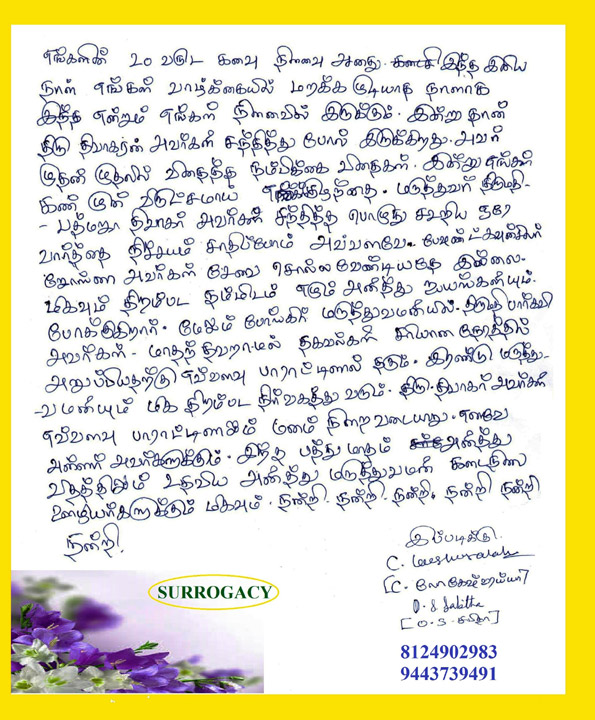 எங்களின் 20 வருட கனவு நினைவு ஆனது. இந்த இனிய
நாள் எங்கள் வாழ்க்கையில் மறக்க முடியாத நாளாக
இந்த என்றும் எங்கள் நினைவில் இருக்கும். இன்று தான்
திரு திவாகரன் அவர்கள் சந்தித்து போல் இருக்கிறது. அவர்
முதன் முதலில் விதைத்த நம்பிக்கை விதைகள். இன்று எங்கள்
கண் முன் விருட்சமாய் குழந்தை. மருத்துவர் திருமதி-
- பத்மஜா திவாகர் அவர்கள் சந்தித்த பொழுது கூறிய ஒரே
வார்த்தை நிச்சயம் சாதிப்போம் அவ்வளவே. பேஷண்ட்கவுன்சிலர்
அவர்கள் சேவை சொல்லவேண்டியதே இல்லை.
மிகவும் திறம்பட நம்மிடம் எழும் அனைத்து பயங்களையும்.
போக்குகிறார். மேலும் மருத்துவமனையில். திருமதி பார்கவி
அவர்கள் - மாதந் தவறாமல் தகவல்கள் சரியான நேரத்தில்
அனுப்பியதற்கு எவ்வளவு பாராட்டினால் தகும். இரண்டு மருத்து-
-வமனையும் மிக திறம்பட நிர்வகித்து வரும். திரு. திவாகர் அவர்கள்
எவ்வளவு பாராட்டினாலும் மனம் நிறைவடையாது. எனவே
அன்னார் அவர்களுக்கும். இந்த பத்து மாதம் அனைத்து
விதத்திலும் உதவிய அனைத்து மருத்துவமனை கடைநிலை
ஊழியர்களுக்கும் மிகவும். நன்றி. நன்றி. நன்றி. நன்றி நன்றி
நன்றி.
இப்படிக்கு.
C.
[C. லோகேஷ்வரய்யா]
O.S Sabitha
[O.S. சபிதா]
SURROGACY
8124902983
9443739491